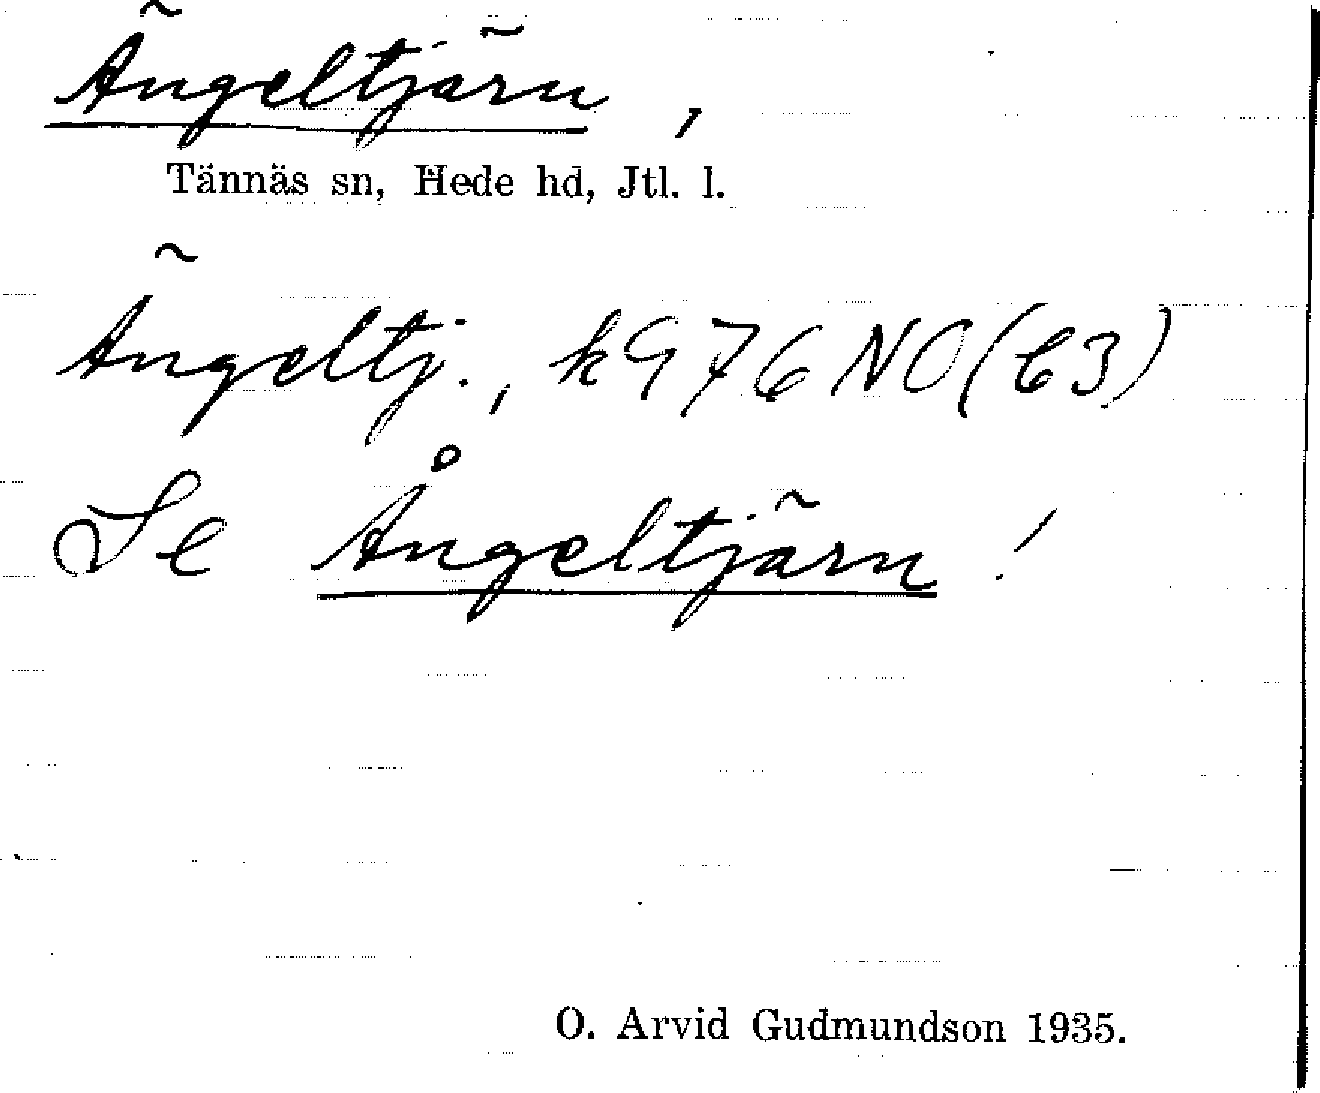 Ängeltjärn,
Tännäs sn, Hede hd, Jtl. l.
Ängeltj., k976NO(C3)
Se Ångeltjärn!
O. Arvid Gudmundson 1935.